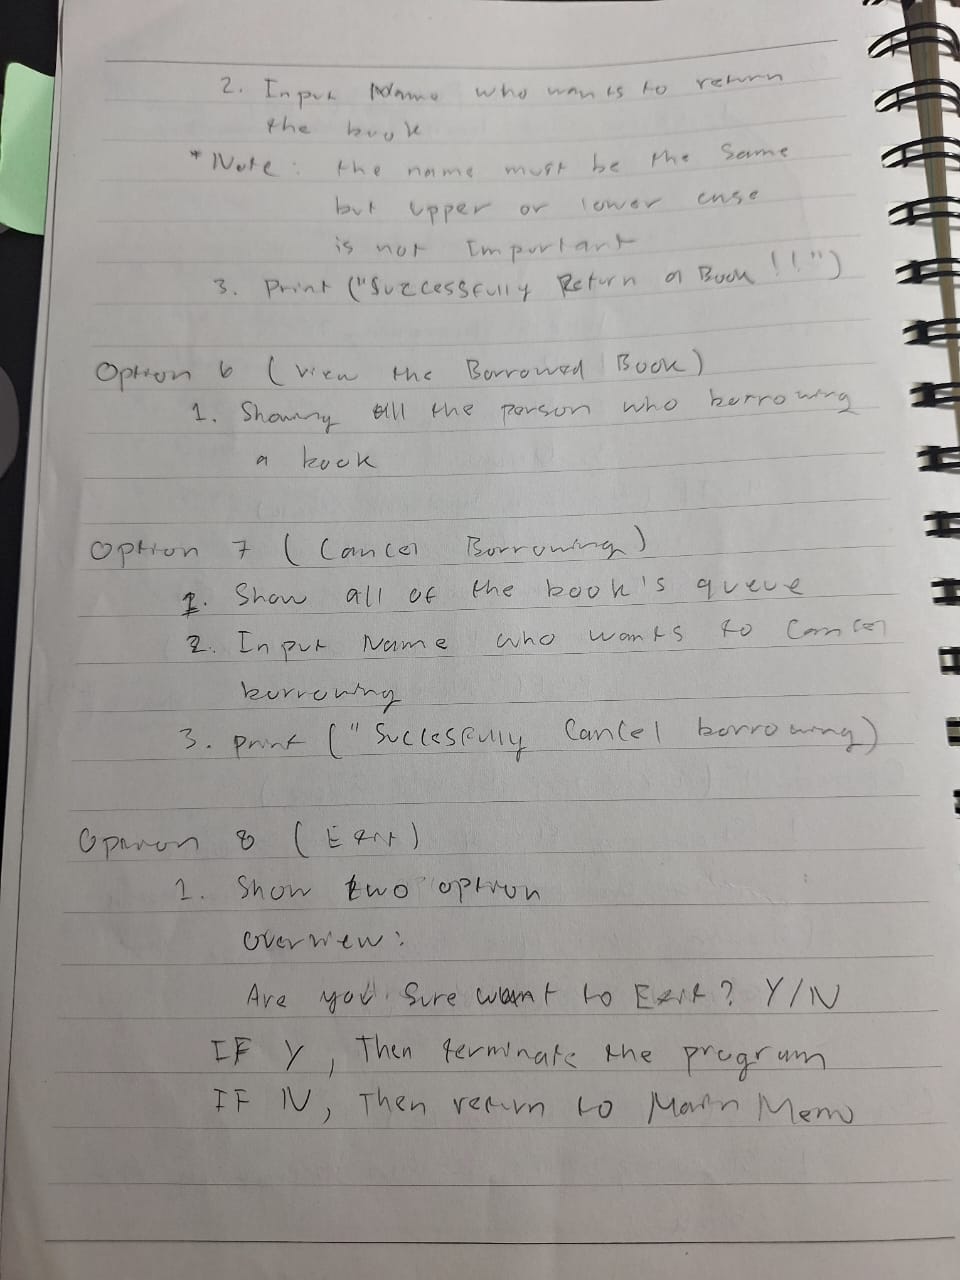 2. Input Name who wants to return
the book
* Note : the name must be the same
but upper or lower case
is not Important
3. Print ("Suzcessfully Return a Book !!")
Option 6 ( view the Borrowed Book )
1. Showing all the person who borrowing
a book
Option 7 ( Cancel Borrowing )
1. Show all of the book's queue
2. Input Name who wants to Cancel
borrowing
3. print (" Succesfully Cancel borrowing)
Option 8 ( Exit )
1. Show two option
overview :
Are you sure want to Exit ? Y/N
IF Y , Then terminate the program
IF N , Then return to Main Menu